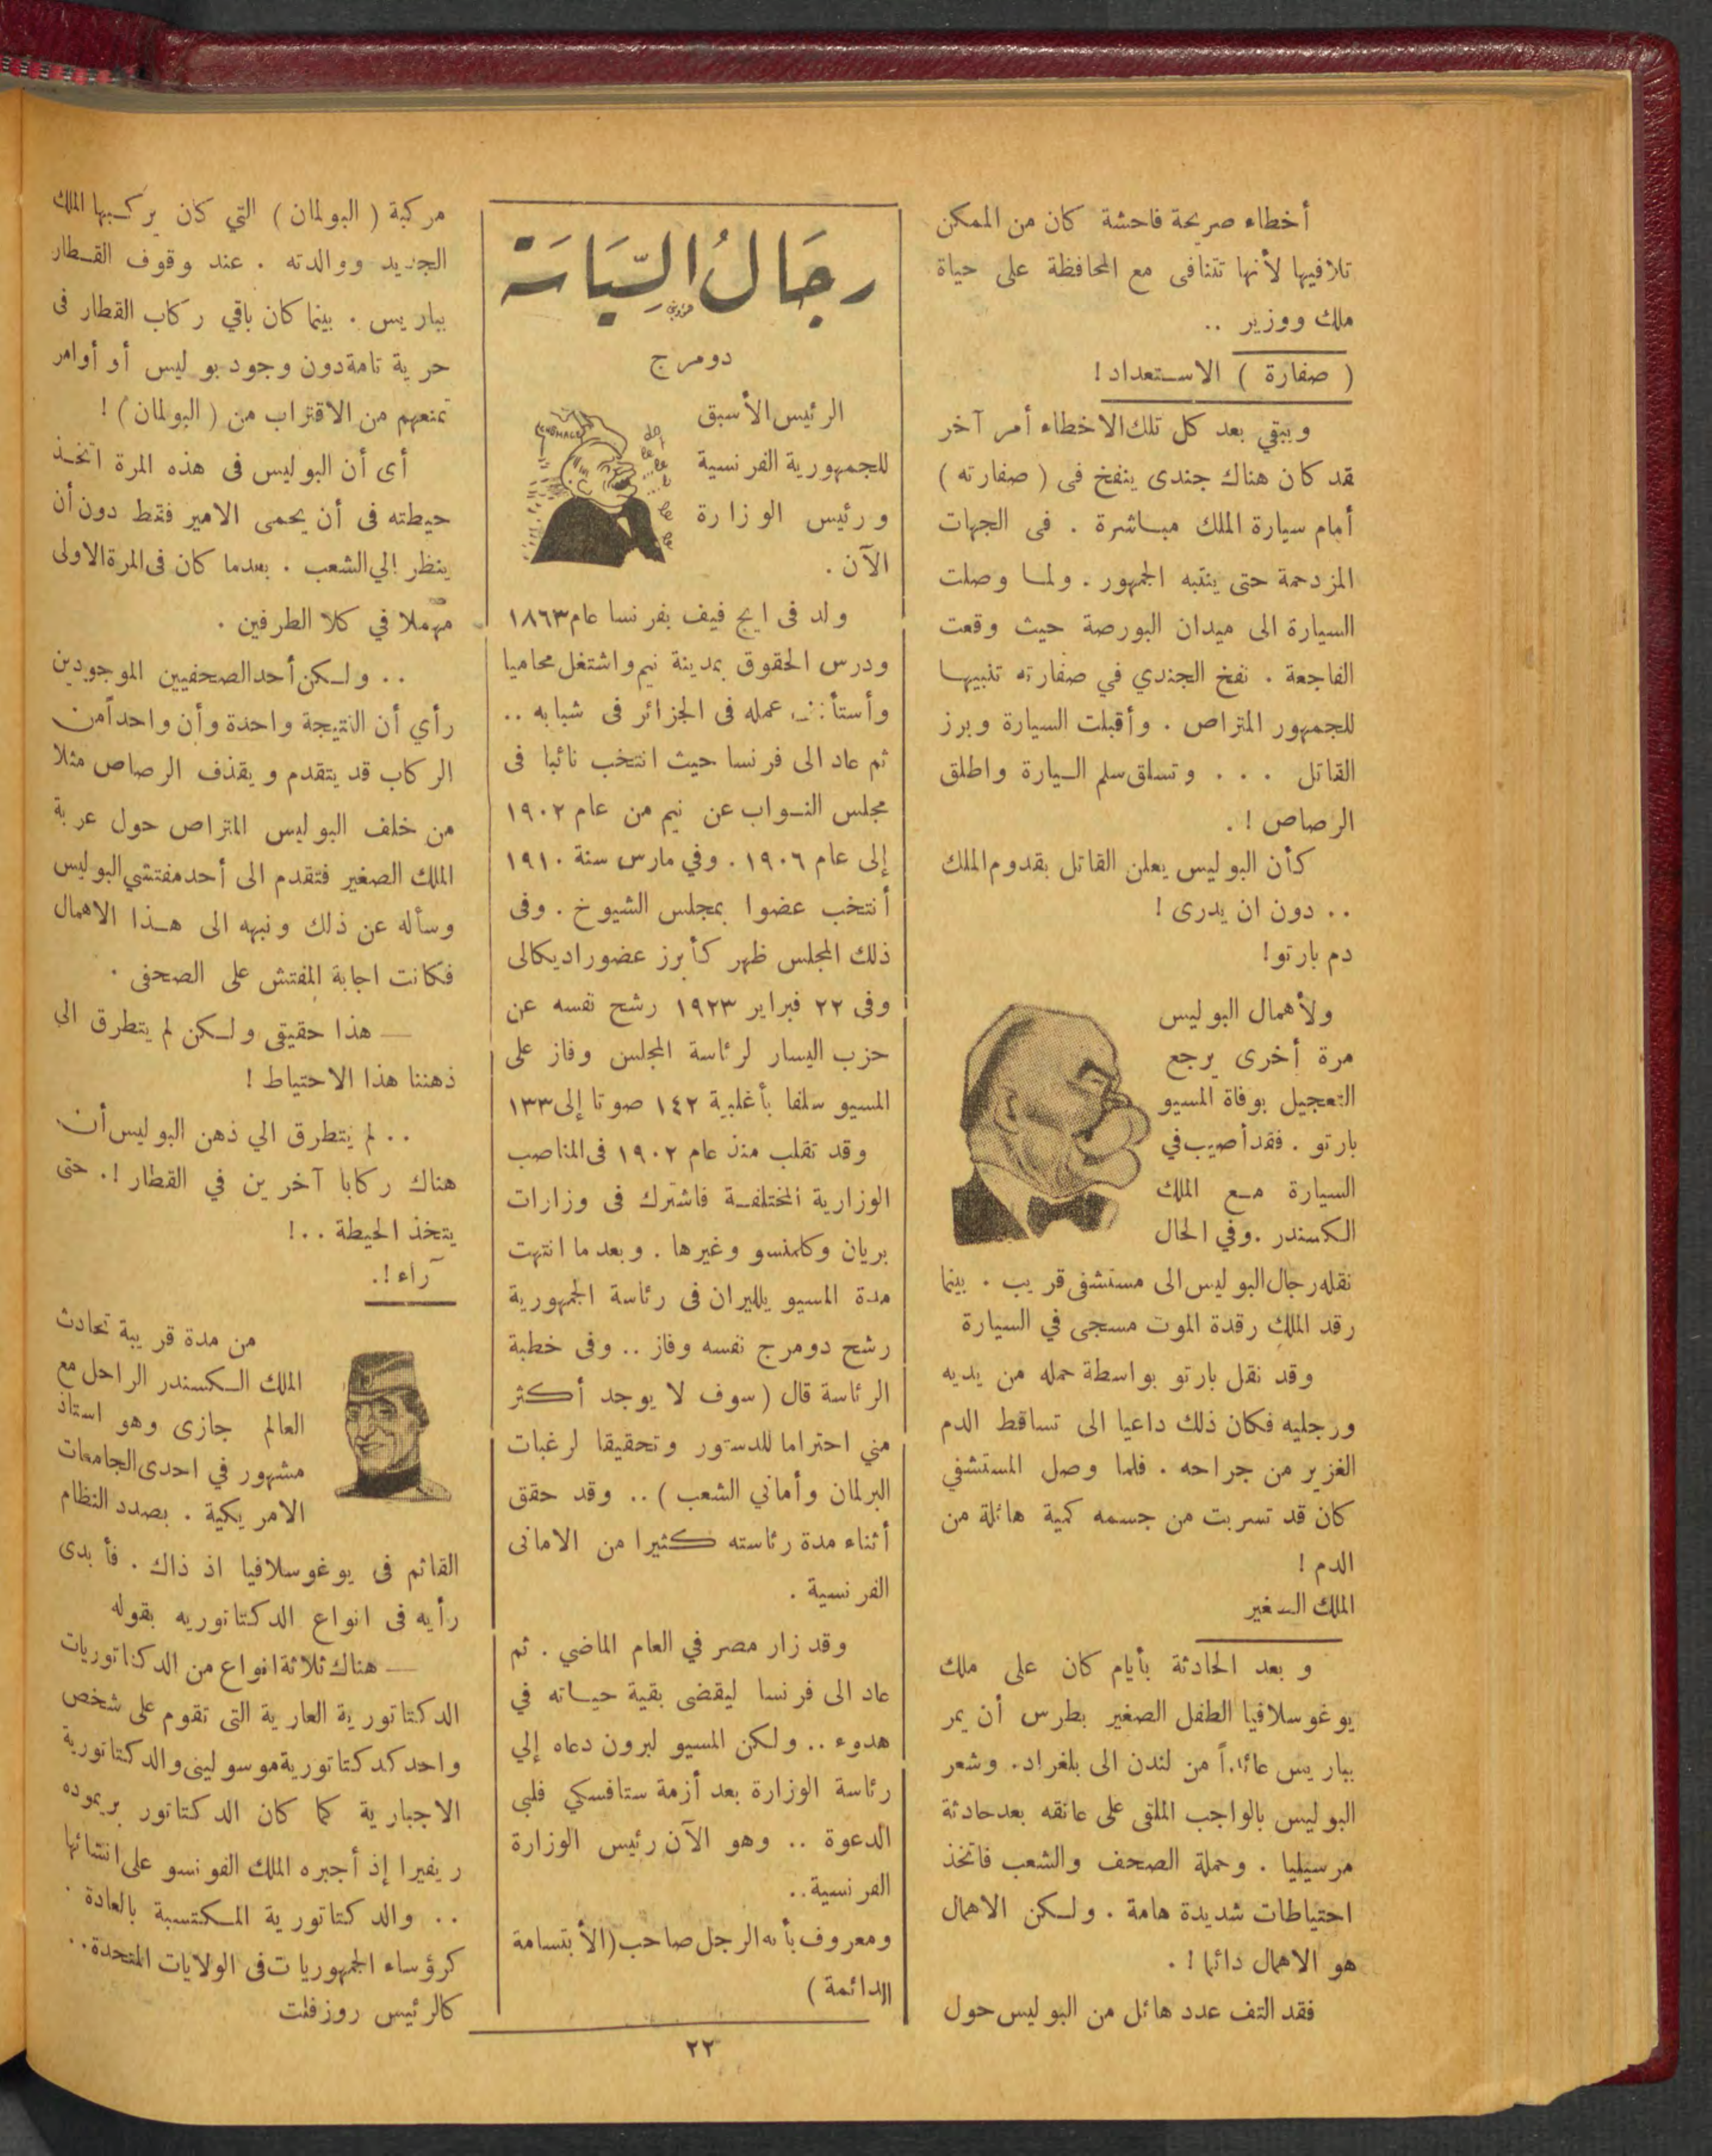 أخطاء صريحة فاحشة كان من الممكن
تلافيها لأنها تتنافى مع المحافظة على حياة
ملك ووزير ..
( صفارة ) الاستعداد !
ويبقي بعد كل تلك الاخطاء أمر آخر
قد كان هناك جندى ينفخ فى ( صفارته )
أمام سيارة الملك مباشرة . فى الجهات
المزدحمة حتى ينتبه الجمهور . ولما وصلت
السيارة الى ميدان البورصة حيث وقعت
الفاجعة . نفخ الجندي في صفارته تنبيها
للجمهور المتراص . وأقبلت السيارة وبرز
القاتل . . . وتسلق سلم السيارة واطلق
الرصاص ! .
كأن البوليس يعلن القاتل بقدوم الملك
.. دون ان يدرى !
دم بارتو !
ولأهمال البوليس
مرة أخرى يرجع
التعجيل بوفاة المسيو
بارتو . فقد أصيب في
السيارة مع الملك
الكسندر . وفي الحال
نقله رجال البوليس الى مستشفى قريب . بينما
رقد الملك رقدة الموت مسجى في السيارة
وقد نقل بارتو بواسطة حمله من يديه
ورجليه فكان ذلك داعيا الى تساقط الدم
الغزير من جراحه . فلما وصل المستشفي
كان قد تسربت من جسمه كمية هائلة من
الدم !
الملك الصغير
وبعد الحادثة بأيام كان على ملك
يوغوسلافيا الطفل الصغير بطرس أن يمر
بباريس عائداً من لندن الى بلغراد . وشعر
البوليس بالواجب الملقى على عاتقه بعد حادثة
مرسيليا . وحملة الصحف والشعب فاتخذ
احتياطات شديدة هامة . ولكن الاهمال
هو الاهمال دائما ! .
فقد التف عدد هائل من البوليس حول
رجَالُ السِّيَاسَة
دومرج
الرئيس الأسبق
للجمهورية الفرنسية
ورئيس الوزارة
الآن .
ولد فى ايج فيف بفرنسا عام ١٨٦٣
ودرس الحقوق بمدينة نيم واشتغل محاميا
وأستأنف عمله فى الجزائر فى شبابه ..
ثم عاد الى فرنسا حيث انتخب نائبا فى
مجلس النواب عن نيم من عام ١٩٠٢
إلى عام ١٩٠٦ . وفي مارس سنة ١٩١٠
أنتخب عضوا بمجلس الشيوخ . وفى
ذلك المجلس ظهر كأبرز عضو راديكالى
وفى ٢٢ فبراير ١٩٢٣ رشح نفسه عن
حزب اليسار لرئاسة المجلس وفاز على
المسيو سلفا بأغلبية ١٤٢ صوتا إلى ١٣٣
وقد تقلب منذ عام ١٩٠٢ فى المناصب
الوزارية المختلفة فاشترك فى وزارات
بريان وكلمنسو وغيرها . وبعد ما انتهت
مدة المسيو يلليران فى رئاسة الجمهورية
رشح دومرج نفسه وفاز .. وفى خطبة
الرئاسة قال ( سوف لا يوجد أكثر
مني احتراما للدستور وتحقيقا لرغبات
البرلمان وأماني الشعب ) .. وقد حقق
أثناء مدة رئاسته كثيرا من الامانى
الفرنسية .
وقد زار مصر في العام الماضي . ثم
عاد الى فرنسا ليقضى بقية حياته في
هدوء .. ولكن المسيو لبرون دعاه إلي
رئاسة الوزارة بعد أزمة ستافسكي فلبى
الدعوة .. وهو الآن رئيس الوزارة
الفرنسية ..
ومعروف بأنه الرجل صاحب ( الأبتسامة
الدائمة )
مركبة ( البولمان ) التي كان يركبها الملك
الجديد ووالدته . عند وقوف القطار
بباريس . بينما كان باقي ركاب القطار فى
حرية تامة دون وجود بوليس أو أوامر
تمنعهم من الاقتراب من ( البولمان ) !
أى أن البوليس فى هذه المرة اتخذ
حيطته فى أن يحمى الامير فقط دون أن
ينظر إلي الشعب . بعدما كان فى المرة الاولى
مهملا في كلا الطرفين .
.. ولكن أحد الصحفيين الموجودين
رأي أن النتيجة واحدة وأن واحداً من
الركاب قد يتقدم ويقذف الرصاص مثلا
من خلف البوليس المتراص حول عربة
الملك الصغير فتقدم الى أحد مفتشي البوليس
وسأله عن ذلك ونبهه الى هذا الاهمال
فكانت اجابة المفتش على الصحفى .
— هذا حقيقى ولكن لم يتطرق الى
ذهننا هذا الاحتياط !
.. لم يتطرق الي ذهن البوليس أن
هناك ركابا آخرين في القطار ! . حتى
يتخذ الحيطة .. !
آراء ! .
من مدة قريبة تحادث
الملك الكسندر الراحل مع
العالم جازى وهو استاذ
مشهور في احدى الجامعات
الامريكية . بصدد النظام
القائم فى يوغوسلافيا اذ ذاك . فأبدى
رأيه فى انواع الدكتاتوريه بقوله
— هناك ثلاثة انواع من الدكتاتوريات
الدكتاتورية العارية التى تقوم على شخص
واحد كدكتاتورية موسولينى والدكتاتورية
الاجبارية كما كان الدكتاتور بريموده
ريفيرا إذ أجبره الملك الفونسو على انشائها
.. والدكتاتورية المكتسبة بالعادة .
كرؤساء الجمهوريات فى الولايات المتحدة ..
كالرئيس روزفلت
٢٢